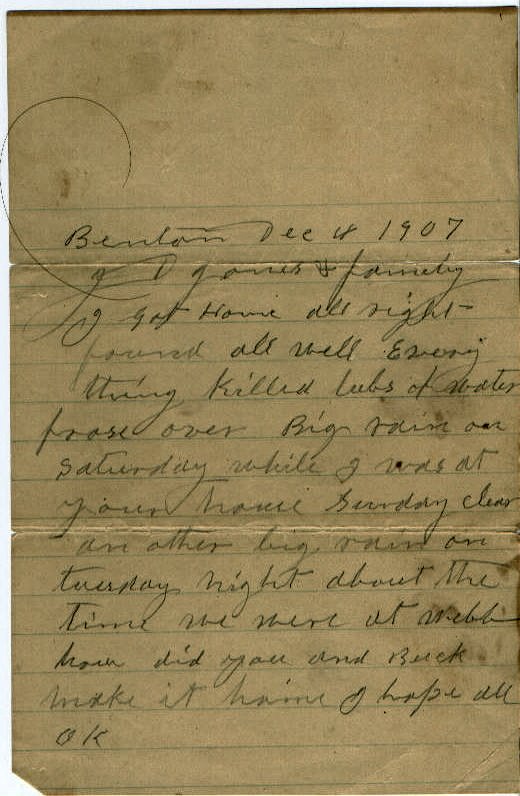 Benton Dec 18 1907
J D Jones & family
I got Home all right
found all well Every
thing killed tubs of water
frose over Big rain on
Saturday while I was at
your house Sunday clear
an other big rain on
tuesday night about the
time we were at Webb
how did you and Buck
make it home I hope all
OK